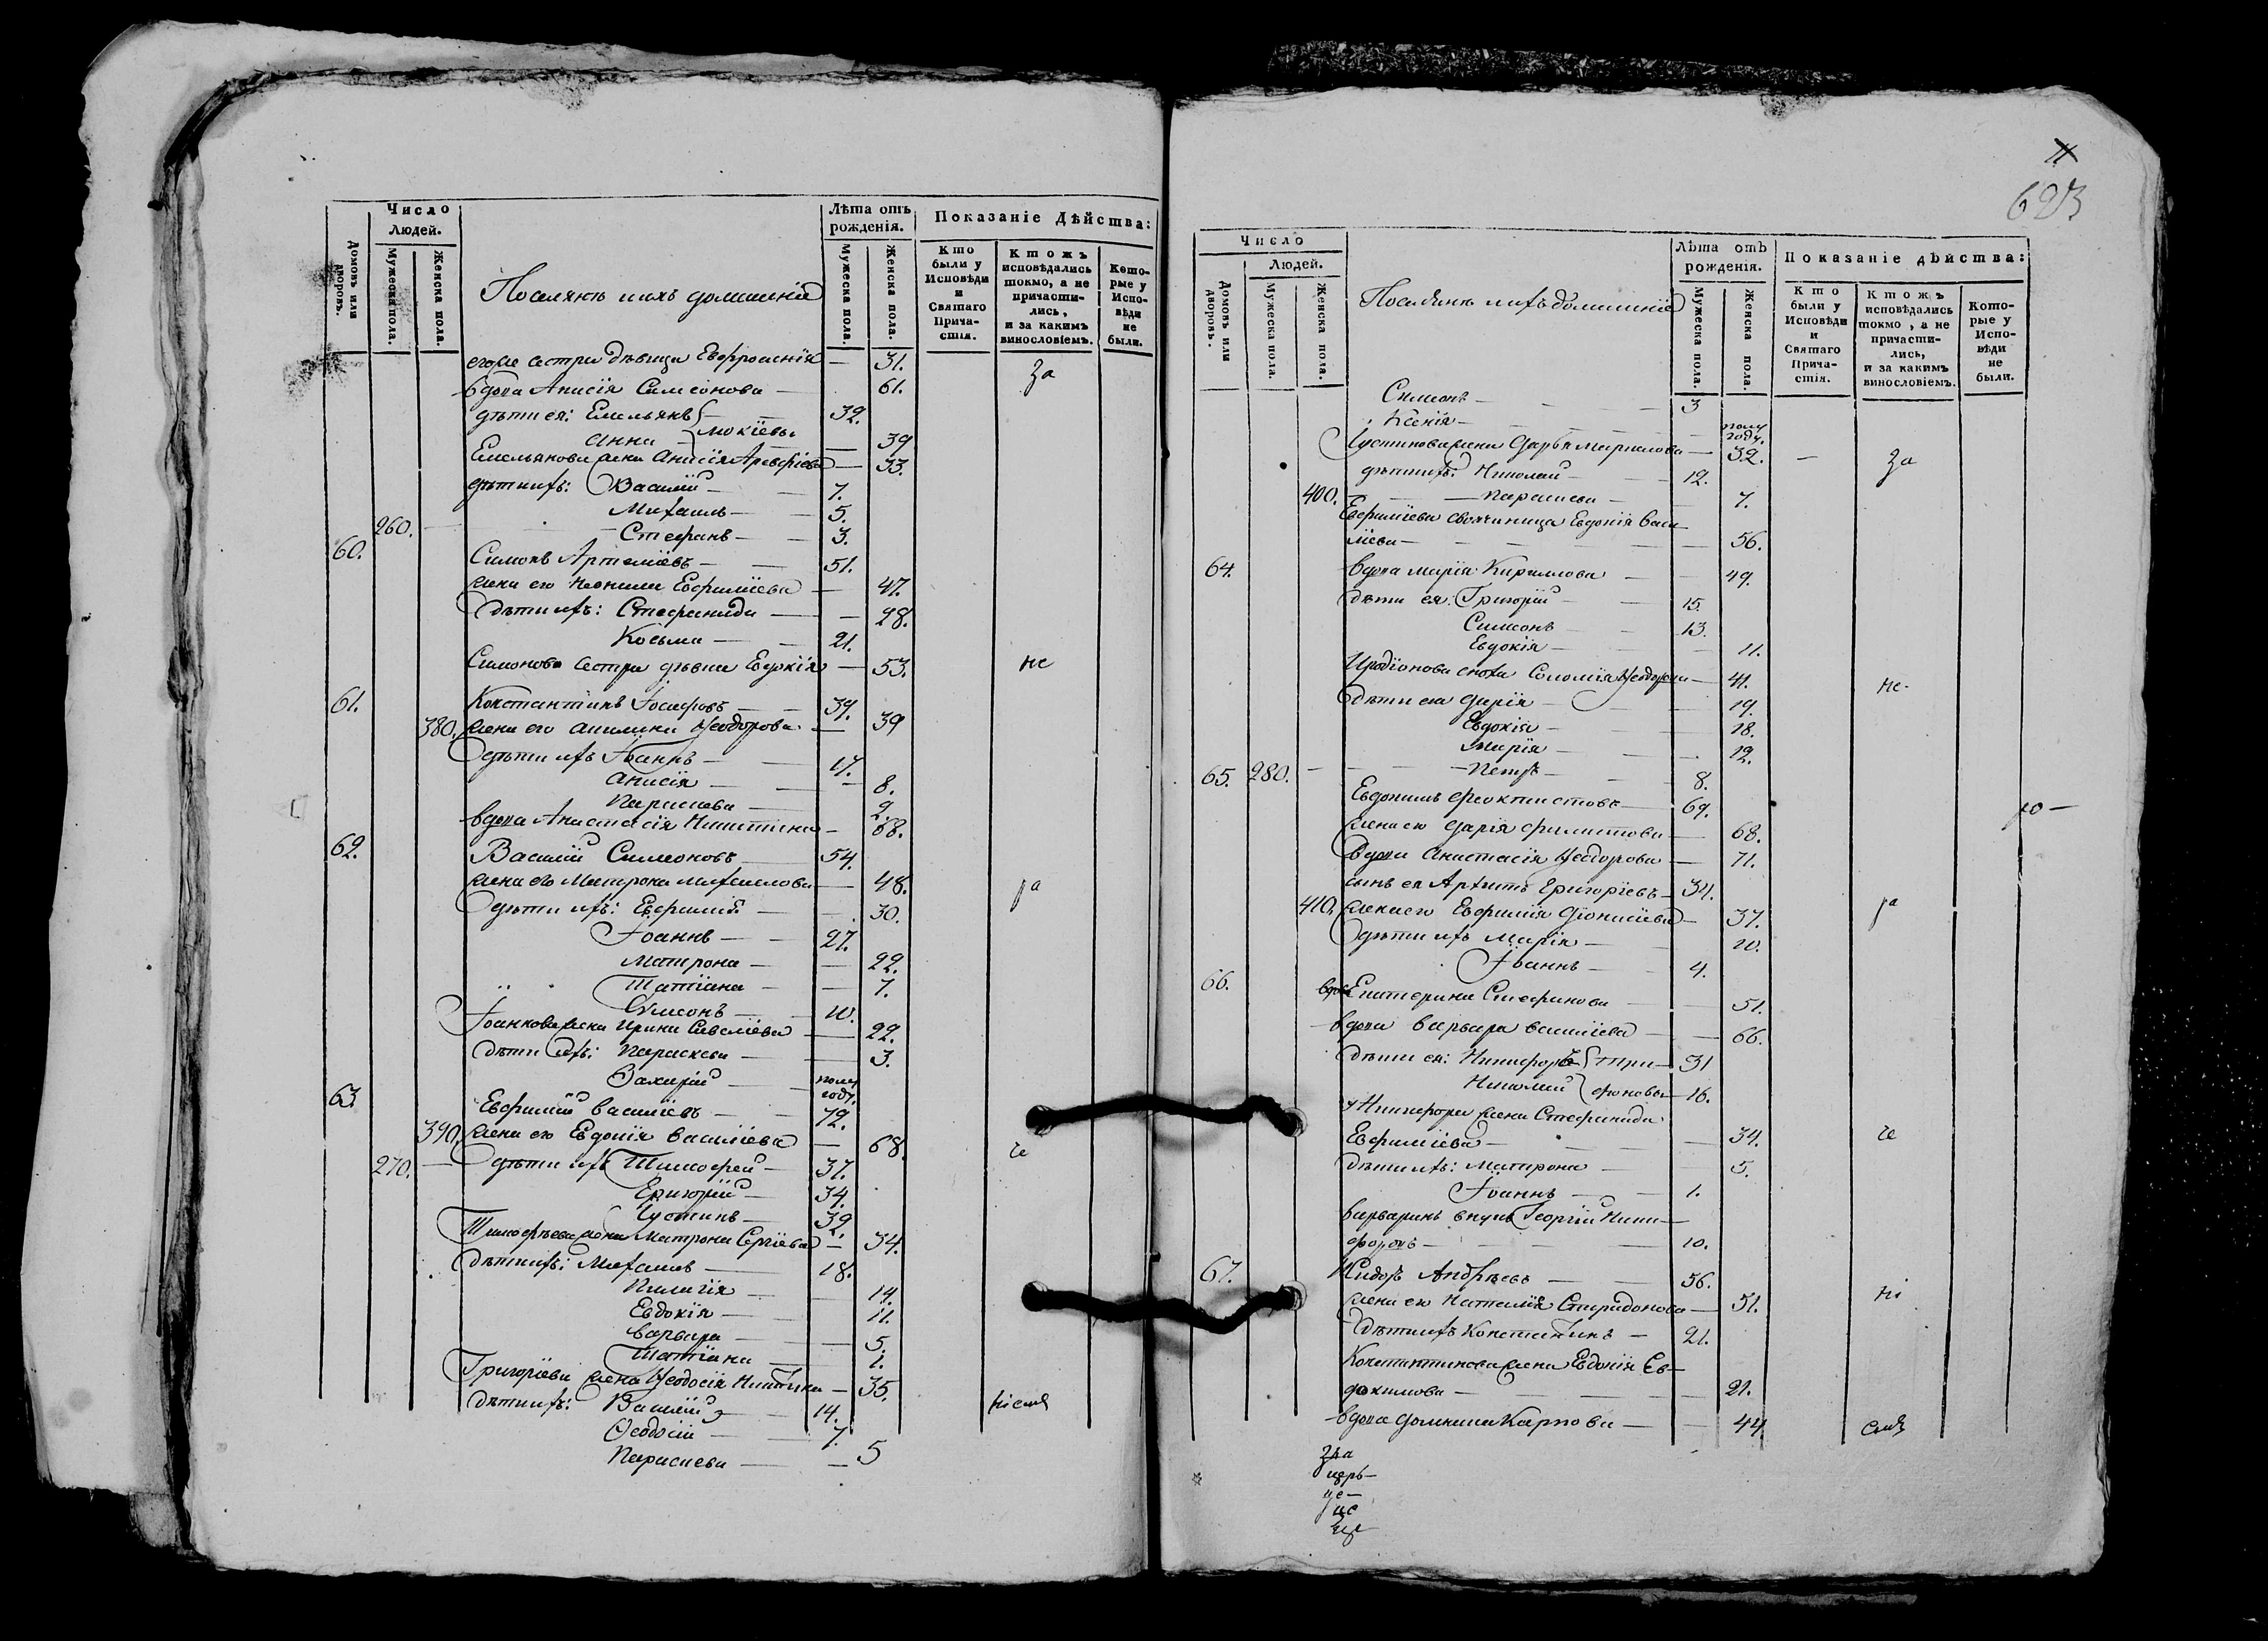 Число
Людей.
Домовъ или дворовъ.
Мужеска пола.
Женска пола.
Поселяне и ихъ домашнїе
Лѣта отъ рожденїя.
Мужеска пола.
Женска пола.
Показанїе Дѣйства:
Кто были у Исповѣди и Святаго Причастїя.
Ктожъ исповѣдались токмо, а не причастились, и за какимъ винословїемъ.
Которые у Исповѣди не были.
его же сестра дѣвица Евфросинїя — 31.
вдова Анисїя Симеонова — 61. за
дѣти ея: Емельянъ — 32.
Анна } Мокїевы — 39
Емельянова жена Анисїя — 33.
дѣти ихъ: Василїй — 7.
Михаилъ — 5.
260. — Стефанъ — 3.
60. Симонъ Артемїевъ — 51.
жена его Неонила Евфимїева — 47.
дѣти ихъ: Стефанида — 28.
Косьма — 21.
Симонова сестра дѣвка Евдокїя — 53. не
61. Константинъ Іосифовъ — 39.
380. жена его Акилина Ѳеодорова — 39
дѣти ихъ Іоаннъ — 17.
Анисїя — 8.
Параскева — 2.
вдова Анастасїя Никитина — 68.
62. Василїй Симеоновъ — 54.
жена его Матрона Михаилова — 48. ра
дѣти ихъ: Евфимїя — 30.
Іоаннъ — 27.
Матрона — 22.
Татїана — 7.
Симеонъ — 10.
Іоаннова жена Ирина Савелїева — 22.
дѣти ихъ: Параскева — 3.
Захарїй — полу году.
63. Евфимїй Василїевъ — 72.
390. жена его Евдокїя Василїева — 68. че
270. — дѣти ихъ Тимофей — 37.
Григорїй — 34.
Іустинъ — 32.
Тимофѣева жена Матрона Сергїева — 34.
дѣти ихъ: Михаилъ — 18.
Пелагїя — 14.
Евдокїя — 11.
Варвара — 5.
Татїана — 1.
Григорїева жена Ѳеодосїя Никитина — 35.
дѣти ихъ: Василїй — 14.
Ѳеодосїй — 7.
Параскева — 5
623
Число
Людей.
Домовъ или дворовъ.
Мужеска пола.
Женска пола.
Поселяне и ихъ домашнїе
Лѣта отъ рожденїя.
Мужеска пола.
Женска пола.
Показанїе дѣйства:
Кто были у Исповѣди и Святаго Причастїя.
Ктожъ исповѣдались токмо, а не причастились, и за какимъ винословїемъ.
Которые у Исповѣди не были.
Симонъ — 3
Ксенїя — полу году.
Іустинова жена Дарья Маркелова — 32. — за
дѣти ихъ: Николай — 12.
400. — Параскева — 7.
Евфимїева своячиница Евдокїя Васи-
лїева — 56.
64. вдова Марїя Кирилова — 49.
дѣти ея: Григорїй — 15.
Симеонъ — 13.
Евдокїя — 11.
Иродїонова сноха Соломїя Ѳеодорова — 41. не
дѣти ея Дарїя — 19.
Евдокїя — 18.
Марїя — 12.
280. — Петръ — 8.
65. Евдокимъ Феоктистовъ — 69.
жена его Дарїя Филиппова — 68.
вдова Анастасїя Ѳеодорова — 71.
сынъ ея Архипъ Григорїевъ — 34.
410. жена его Евфимїя Дїонисїева — 37. ра
дѣти ихъ Марїя — 10.
Іоаннъ — 4.
66. вдова Екатерина Стефанова — 51.
вдова Варвара Василїева — 66.
дѣти ея: Никифоръ } Три- — 31
Николай } фоновы — 16.
у Никифора жена Стефанида
Евфимїева — 34. че
дѣти ихъ: Матрона — 5.
Іоаннъ — 1.
Варваринъ внукъ Георгїй Ники-
форовъ — 10.
67. Сидоръ Андрѣевъ — 56.
жена его Наталїя Спиридонова — 51.
дѣти ихъ Константинъ — 21.
Константинова жена Евдокїя Ев-
докимова — 21.
вдова Домника Карпова — 44